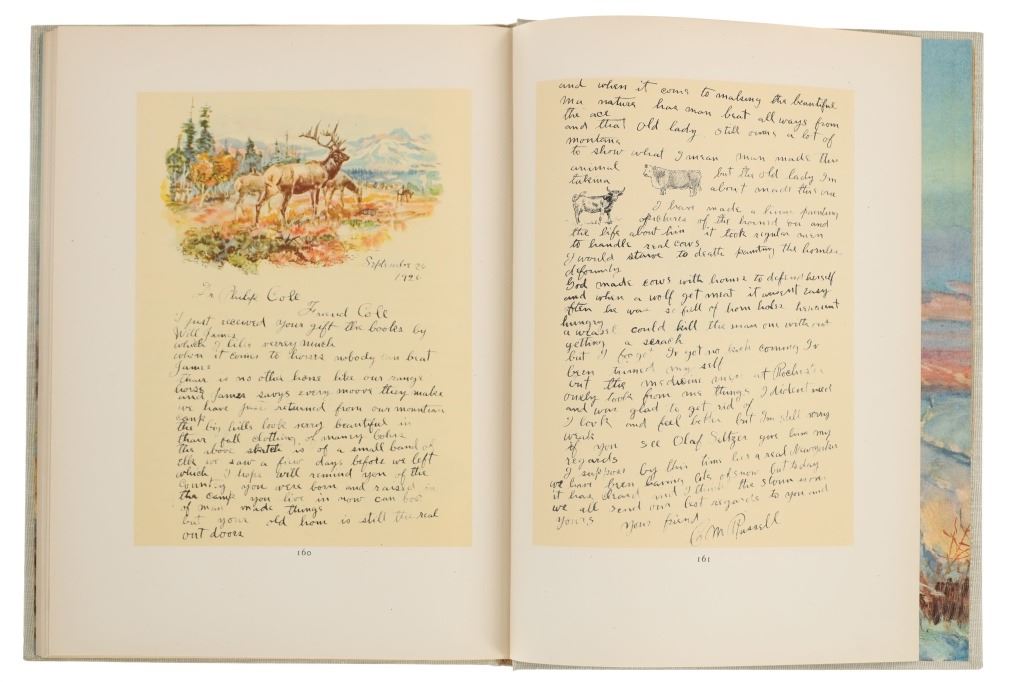 September 26
1926
Dr Philip Cole
Friend Cole
I just received your gift the books by
Will James
which I like verry much
when it comes to horses nobody can beat
James
thair is no other horse like our range
horse
and James savys every moove they make
we have just returned from our mountain
camp
the big hills look verry beautiful in
thair fall clothing of maney colors
the above sketch is of a small band of
Elk we saw a fiew days before we left
which I hope will remind you of the
country you were born and raised in
the camp you live in now can boo
of man made things
but your old home is still the real
out doors
160
and when it coms to making the beautiful
Ma nature has man beat all ways from
the ace
and that old lady still owns a lot of
montana
to show what I mean man made this
animal
but this old lady Im
about made this one
I have made a living painting
pictures of the horned one and
the life about him it took regular men
to handle real cows
I would starve to death painting the hornless
deformity
God made cows with horns to defend herself
and when a wolf got meat it wasent easy
often he was so full of horn holes he wasent
hungry
a weasel could kill the man one with out
getting a scrach
but I forget Iv got no kick coming Iv
been trimed my self
but the medicine men at Rochester
onely took from me things I dident need
and was glad to get rid of
I look and feel better but Im still verry
weak
if you see Olaf Seltzer give him my
regards
I suppose by this time hes a real Newyorker
we have been having lots of snow but to day
it has cleard and I think the storm is over
we all send our best regards to you and
yours
your friend
C M Russell
161